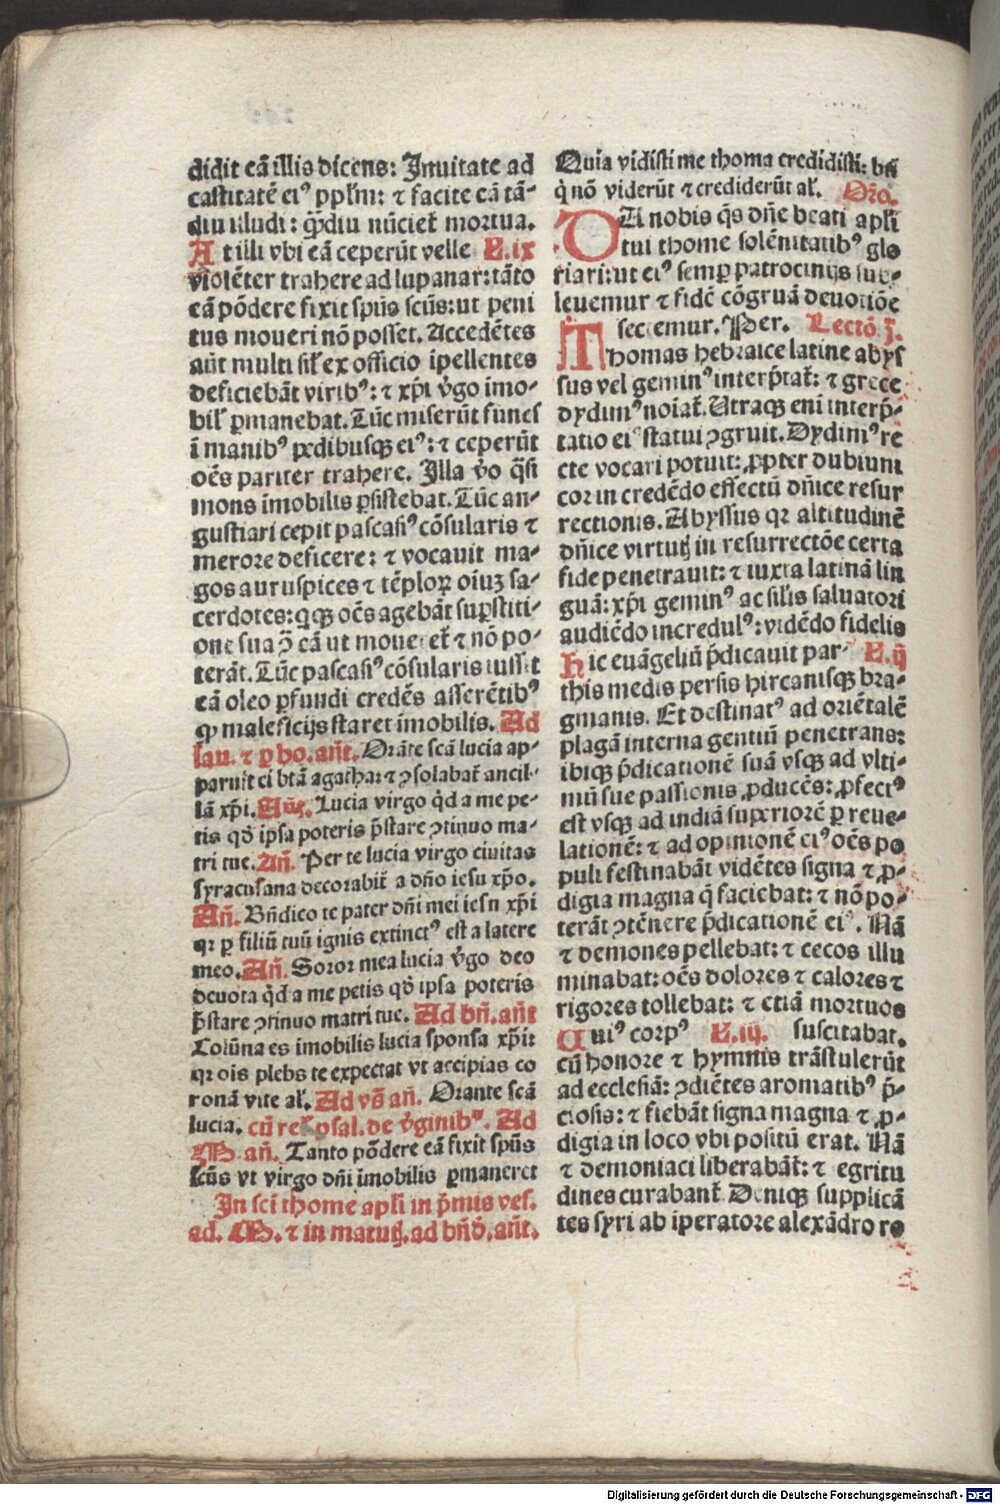 didit eā illis dicens: Inuitate ad
castitatē eiꝰ ppl̄m: ⁊ facite eā tā-
diu illudi: q̄diu nūciet̄ mortua.
At illi vbi eā ceperūt velle L.ix
violēter trahere ad lupanar: tāto
eā pōdere fixit sp̄us scūs: ut peni
tus moueri nō posset. Accedētes
aūt multi sil̄ ex officio ipellentes
deficiebāt viribꝰ: ⁊ xp̄i v̄go imo-
bil̄ ꝑmanebat. Tūc miserūt funes
ī manibꝰ pedibusqꝫ eiꝰ: ⁊ ceperūt
oēs pariter trahere. Illa v̄o q̄si
mons imobilis ꝑsistebat. Tūc an-
gustiari cepit pascasiꝰ cōsularis ⁊
merore deficere: ⁊ vocauit ma-
gos auruspices ⁊ tēploꝝ oiuꝫ sa-
cerdotes: qqꝫ oēs agebāt suꝑstiti-
one sua ↄ̄ eā ut moueret̄ ⁊ nō po-
terāt. Tūc pascasiꝰ cōsularis iussit
eā oleo ꝑfundi credēs asserētibꝰ
ꝙ maleficijs staret imobilis. Ad
lau. ⁊ ꝑ ho. añt. Orāte scā lucia ap-
paruit ei btā agatha: ⁊ ↄsolabat̄ ancil-
lā xp̄i. Añt. Lucia virgo qd̄ a me pe-
tis qd̄ ipsa poteris p̄stare ↄtinuo ma-
tri tue. Añ. Per te lucia virgo ciuitas
syracusana decorabit̄ a dño iesu xp̄o.
Añ. Bñdico te pater dñi mei iesu xp̄i
qꝛ ꝑ filiū tuū ignis extinctꝰ est a latere
meo. Añ. Soror mea lucia v̄go deo
deuota qd̄ a me petis qd̄ ipsa poteris
p̄stare ↄtinuo matri tue. Ad bñ. añt
Colūna es imobilis lucia sponsa xp̄i
qꝛ ois plebs te expectat vt accipias co
ronā vite al̄. Ad vō añ. Orante scā
lucia. cū rel̄ psal. de v̄ginibꝰ. Ad
M añ. Tanto pōdere eā fixit sp̄us
scūs vt virgo dñi imobilis ꝑmaneret
In sci thome apl̄i in p̄mis ves.
ad. M. ⁊ in matut̄. ad bñd̄. añt.
Quia vidisti me thoma credidisti: bñ
q̄ nō viderūt ⁊ crediderūt al̄. Or̄o.
DA nobis q̄s dñe beati apl̄i
tui thome solēnitatibꝰ glo
riari: ut eiꝰ semꝑ patrocinijs sub-
leuemur ⁊ fidē cōgruā deuotiōe
sectemur. Per. Lectō. j.
Thomas hebraice latine abys
sus vel geminꝰ interp̄tat̄: ⁊ grece
dydimꝰ noiat̄. Utraqꝫ eni interp̄-
tatio eiꝰ statui ↄgruit. Dydimꝰ re
cte vocari potuit: ꝓpter dubium
cor in credēdo effectū dñice resur
rectionis. Abyssus qꝛ altitudinē
dñice virtutꝭ in resurrectōe certa
fide penetrauit: ⁊ iuxta latinā lin
guā: xp̄i geminꝰ ac sil̄is saluatori
audiēdo incredulꝰ: vidēdo fidelis
Hic euāgeliū p̄dicauit par- L.ij
this medis persis hircanisqꝫ bra-
gmanis. Et destinatꝰ ad oriētalē
plagā interna gentiū penetrans:
ibiqꝫ p̄dicationē suā vsqꝫ ad vlti-
mū sue passionis ꝓducēs: ꝓfectꝰ
est vsqꝫ ad indiā superiorē ꝑ reue-
lationē: ⁊ ad opinionē eiꝰ oēs po
puli festinabāt vidētes signa ⁊ ꝓ-
digia magna q̄ faciebat: ⁊ nō po-
terāt ↄtēnere p̄dicationē eiꝰ. Nā
⁊ demones pellebat: ⁊ cecos illu
minabat: oēs dolores ⁊ calores ⁊
rigores tollebat: ⁊ etiā mortuos
Cuiꝰ corpꝰ L.iij. suscitabat.
cū honore ⁊ hymnis trāstulerūt
ad ecclesiā: ↄdiētes aromatibꝰ p̄-
ciosis: ⁊ fiebāt signa magna ⁊ ꝓ-
digia in loco vbi positū erat. Nā
⁊ demoniaci liberabāt̄: ⁊ egritu
dines curabant̄. Deniqꝫ supplicā
tes syri ab iperatore alexādro ro
Digitalisierung gefördert durch die Deutsche Forschungsgemeinschaft - DFG